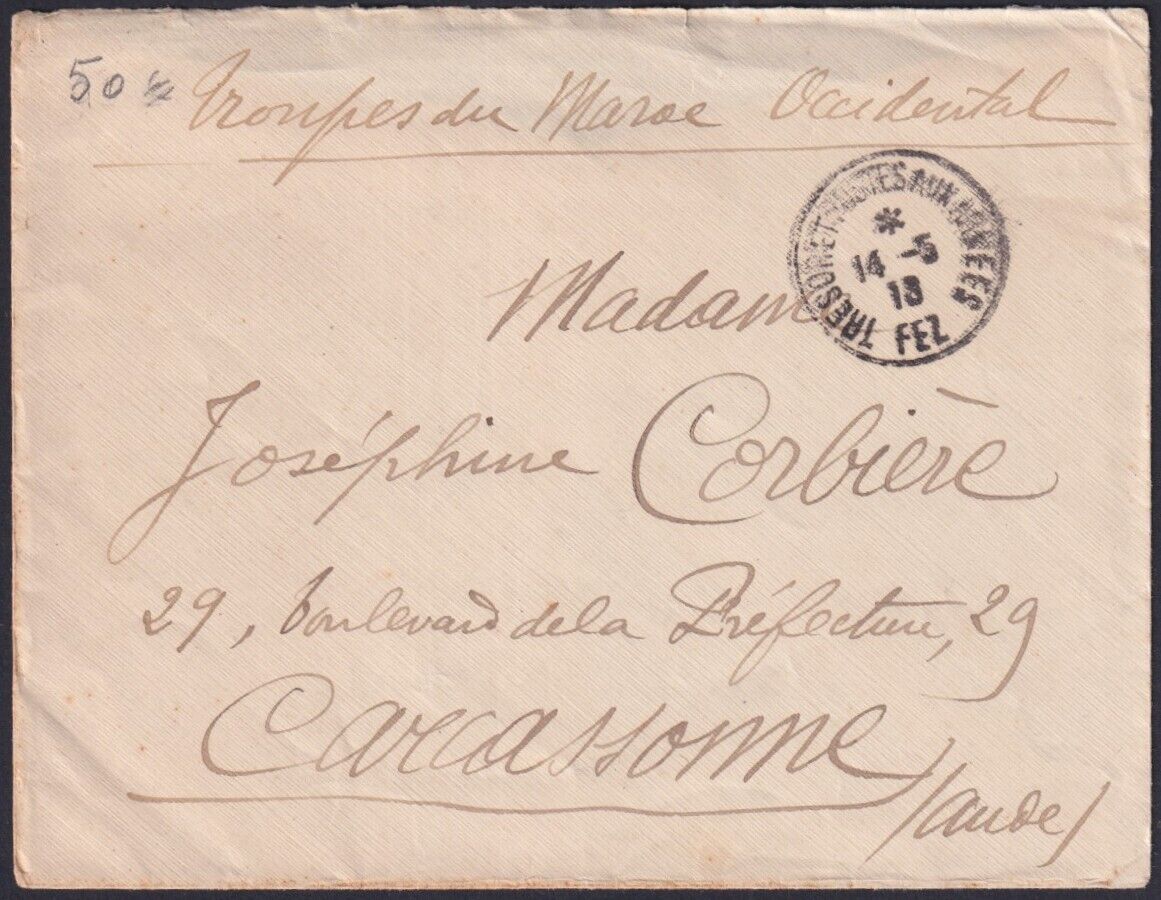 50
Troupes du Maroc Occidental
TRESOR ET POSTES AUX ARMEES
*
14 -5
18
FEZ
Madame
Joséphine Corbière
29, boulevard de la Préfecture, 29
Carcassonne
(Aude)